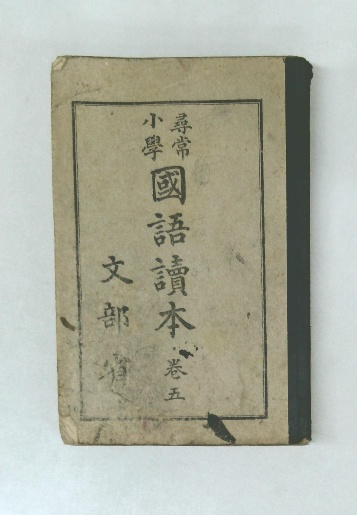 尋常
小學
國語讀本
卷五
文部省